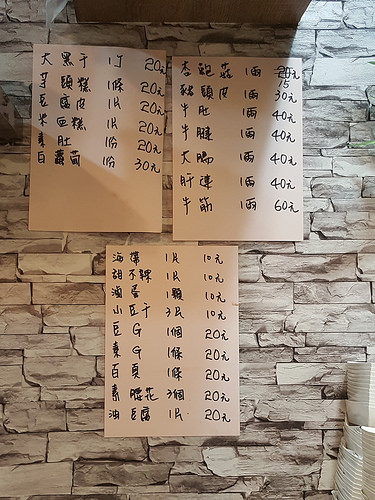 大黑干 1寸 20元
芋頭糕 1條 20元
豆腐皮 1片 20元
米血糕 1片 20元
素肚 1份 20元
白蘿蔔 1份 30元
杏鮑菇 1兩 20元
15
豬頭皮 1兩 30元
牛肚 1兩 40元
牛腱 1兩 40元
大腸 1兩 40元
肝連 1兩 40元
牛筋 1兩 60元
海帶 1片 10元
甜不辣 1片 10元
滷蛋 1顆 10元
小豆干 3片 10元
豆G 1個 20元
素G 1條 20元
百頁 1條 20元
素腰花 3個 20元
油豆腐 1片 20元